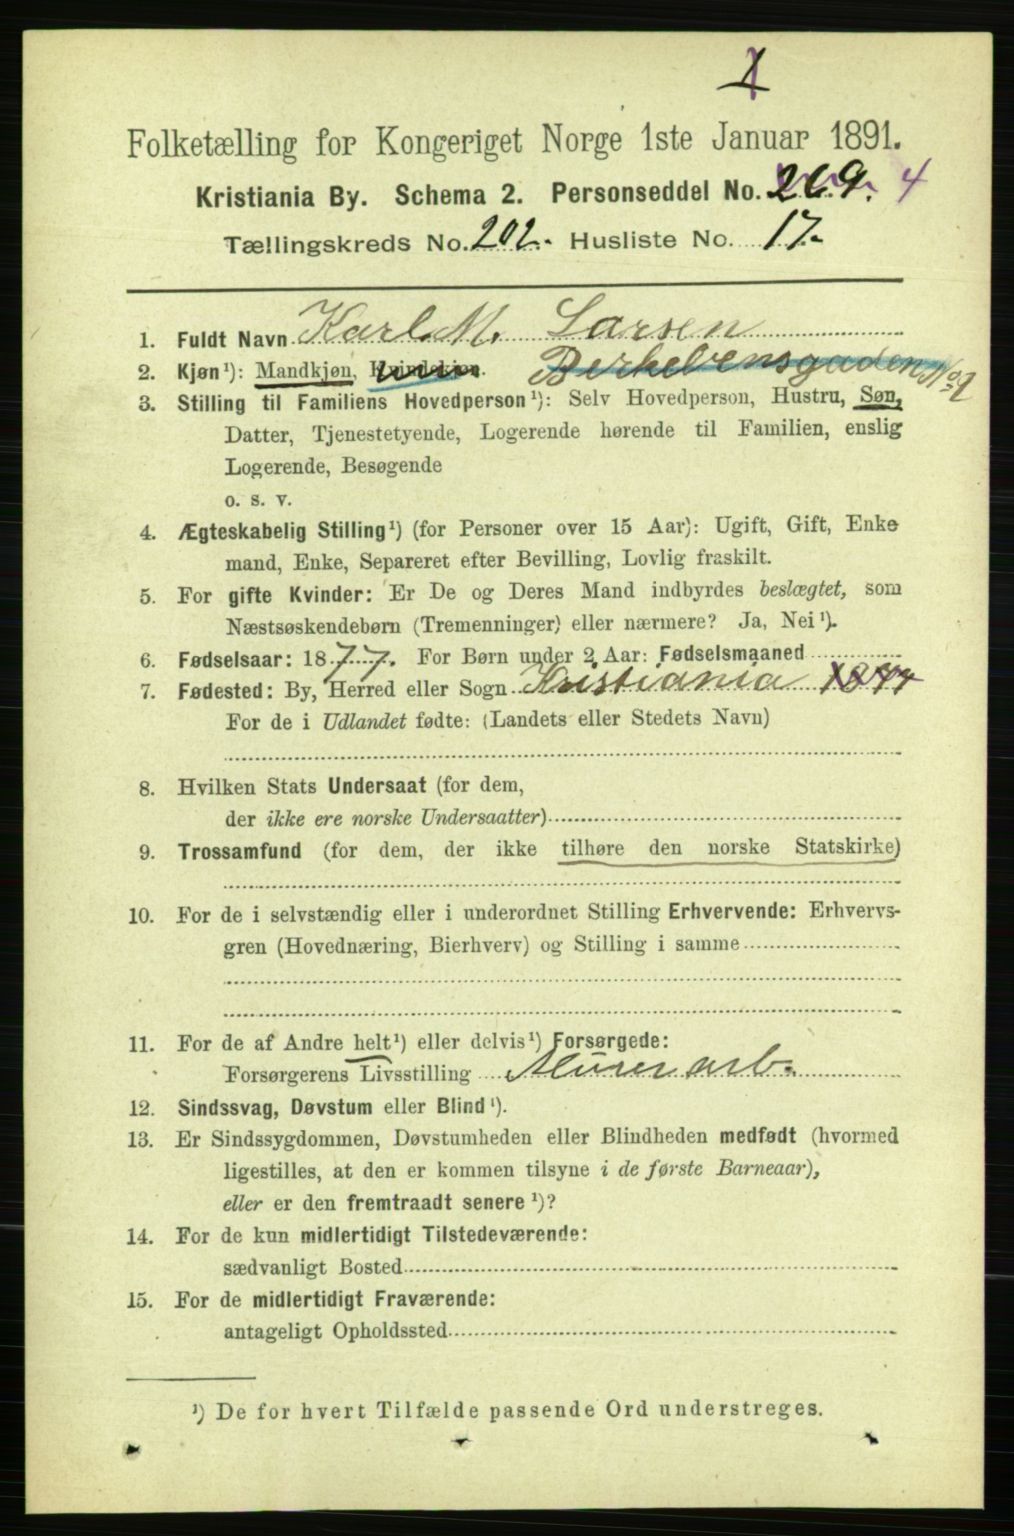 1
Folketælling for Kongeriget Norge 1ste Januar 1891.
Kristiania By. Schema 2. Personseddel No. 269. 4
Tællingskreds No. 202. Husliste No. 17.
1. Fuldt Navn Karl. M. Larsen
2. Kjøn¹): Mandkjøn, Kvindekjøn. Birkebensgaden No 9
3. Stilling til Familiens Hovedperson¹): Selv Hovedperson, Hustru, Søn,
Datter, Tjenestetyende, Logerende hørende til Familien, enslig
Logerende, Besøgende
o. s. v.
4. Ægteskabelig Stilling¹) (for Personer over 15 Aar): Ugift, Gift, Enke
mand, Enke, Separeret efter Bevilling, Lovlig fraskilt.
5. For gifte Kvinder: Er De og Deres Mand indbyrdes beslægtet, som
Næstsøskendebørn (Tremenninger) eller nærmere? Ja, Nei¹).
6. Fødselsaar: 1877. For Børn under 2 Aar: Fødselsmaaned
7. Fødested: By, Herred eller Sogn Kristiania 1877
For de i Udlandet fødte: (Landets eller Stedets Navn)
8. Hvilken Stats Undersaat (for dem,
der ikke ere norske Undersaatter)
9. Trossamfund (for dem, der ikke tilhøre den norske Statskirke)
10. For de i selvstændig eller i underordnet Stilling Erhvervende: Erhvervs-
gren (Hovednæring, Bierhverv) og Stilling i samme
11. For de af Andre helt¹) eller delvis¹) Forsørgede:
Forsørgerens Livsstilling Murer arb.
12. Sindssvag, Døvstum eller Blind¹).
13. Er Sindssygdommen, Døvstumheden eller Blindheden medfødt (hvormed
ligestilles, at den er kommen tilsyne i de første Barneaar),
eller er den fremtraadt senere¹)?
14. For de kun midlertidigt Tilstedeværende:
sædvanligt Bosted
15. For de midlertidigt Fraværende:
antageligt Opholdssted
¹) De for hvert Tilfælde passende Ord understreges.